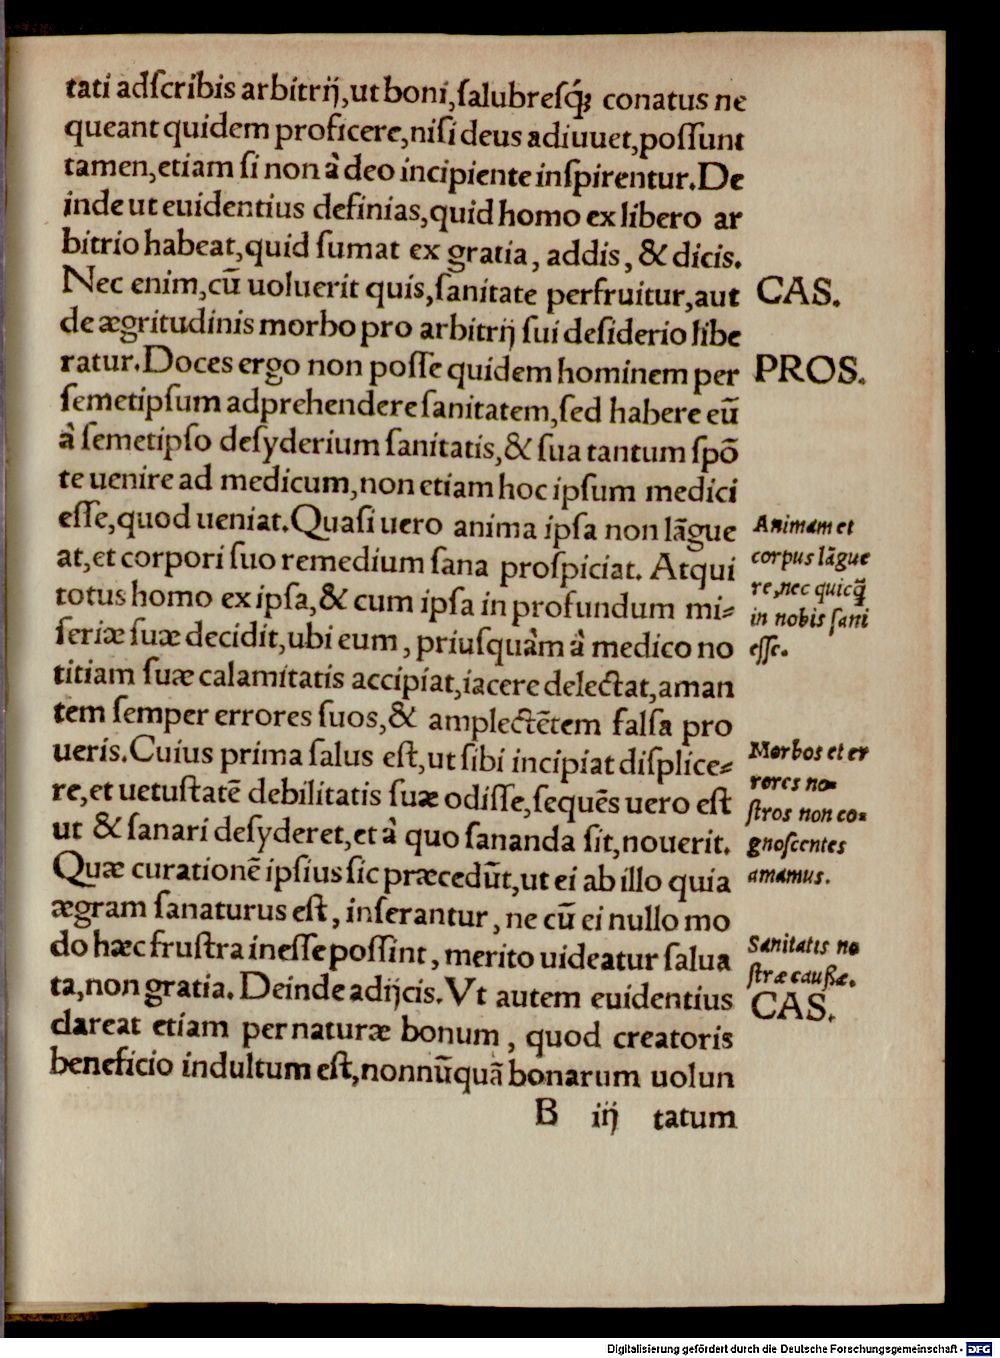 tati adſcribis arbitrij, ut boni, ſalubreſq́; conatus ne
queant quidem proficere, niſi deus adiuuet, poſſunt
tamen, etiam ſi non à deo incipiente inſpirentur. De
inde ut euidentius definias, quid homo ex libero ar
bitrio habeat, quid ſumat ex gratia, addis, & dicis.
Nec enim, cũ uoluerit quis, ſanitate perfruitur, aut
CAS.
de ægritudinis morbo pro arbitrij ſui deſiderio libe
ratur. Doces ergo non poſſe quidem hominem per
PROS.
ſemetipſum adprehendere ſanitatem, ſed habere eũ
à ſemetipſo deſyderium ſanitatis, & ſua tantum ſpõ
te uenire ad medicum, non etiam hoc ipſum medici
eſſe, quod ueniat. Quaſi uero anima ipſa non lãgue
at, et corpori ſuo remedium ſana proſpiciat. Atqui
totus homo ex ipſa, & cum ipſa in profundum mi⸗
ſeriæ ſuæ decidit, ubi eum, priuſquàm à medico no
titiam ſuæ calamitatis accipiat, iacere delectat, aman
tem ſemper errores ſuos, & amplectẽtem falſa pro
ueris. Cuius prima ſalus eſt, ut ſibi incipiat diſplice⸗
re, et uetuſtatẽ debilitatis ſuæ odiſſe, ſequẽs uero eſt
ut & ſanari deſyderet, et à quo ſananda ſit, nouerit.
Quæ curationẽ ipſius ſic præcedũt, ut ei ab illo quia
ægram ſanaturus eſt, inſerantur, ne cũ ei nullo mo
do hæc fruſtra ineſſe poſſint, merito uideatur ſalua
ta, non gratia. Deinde adijcis. Vt autem euidentius
CAS.
clareat etiam per naturæ bonum, quod creatoris
beneficio indultum eſt, nonnũquã bonarum uolun
B iij tatum
Animam et
corpus lãgue
re, nec quicq̃
in nobis ſani
eſſe.
Morbos et er
rores no⸗
ſtros non co⸗
gnoſcentes
amamus.
Sanitatis no
ſtræ cauſſæ.
Digitalisierung gefördert durch die Deutsche Forschungsgemeinschaft - DFG